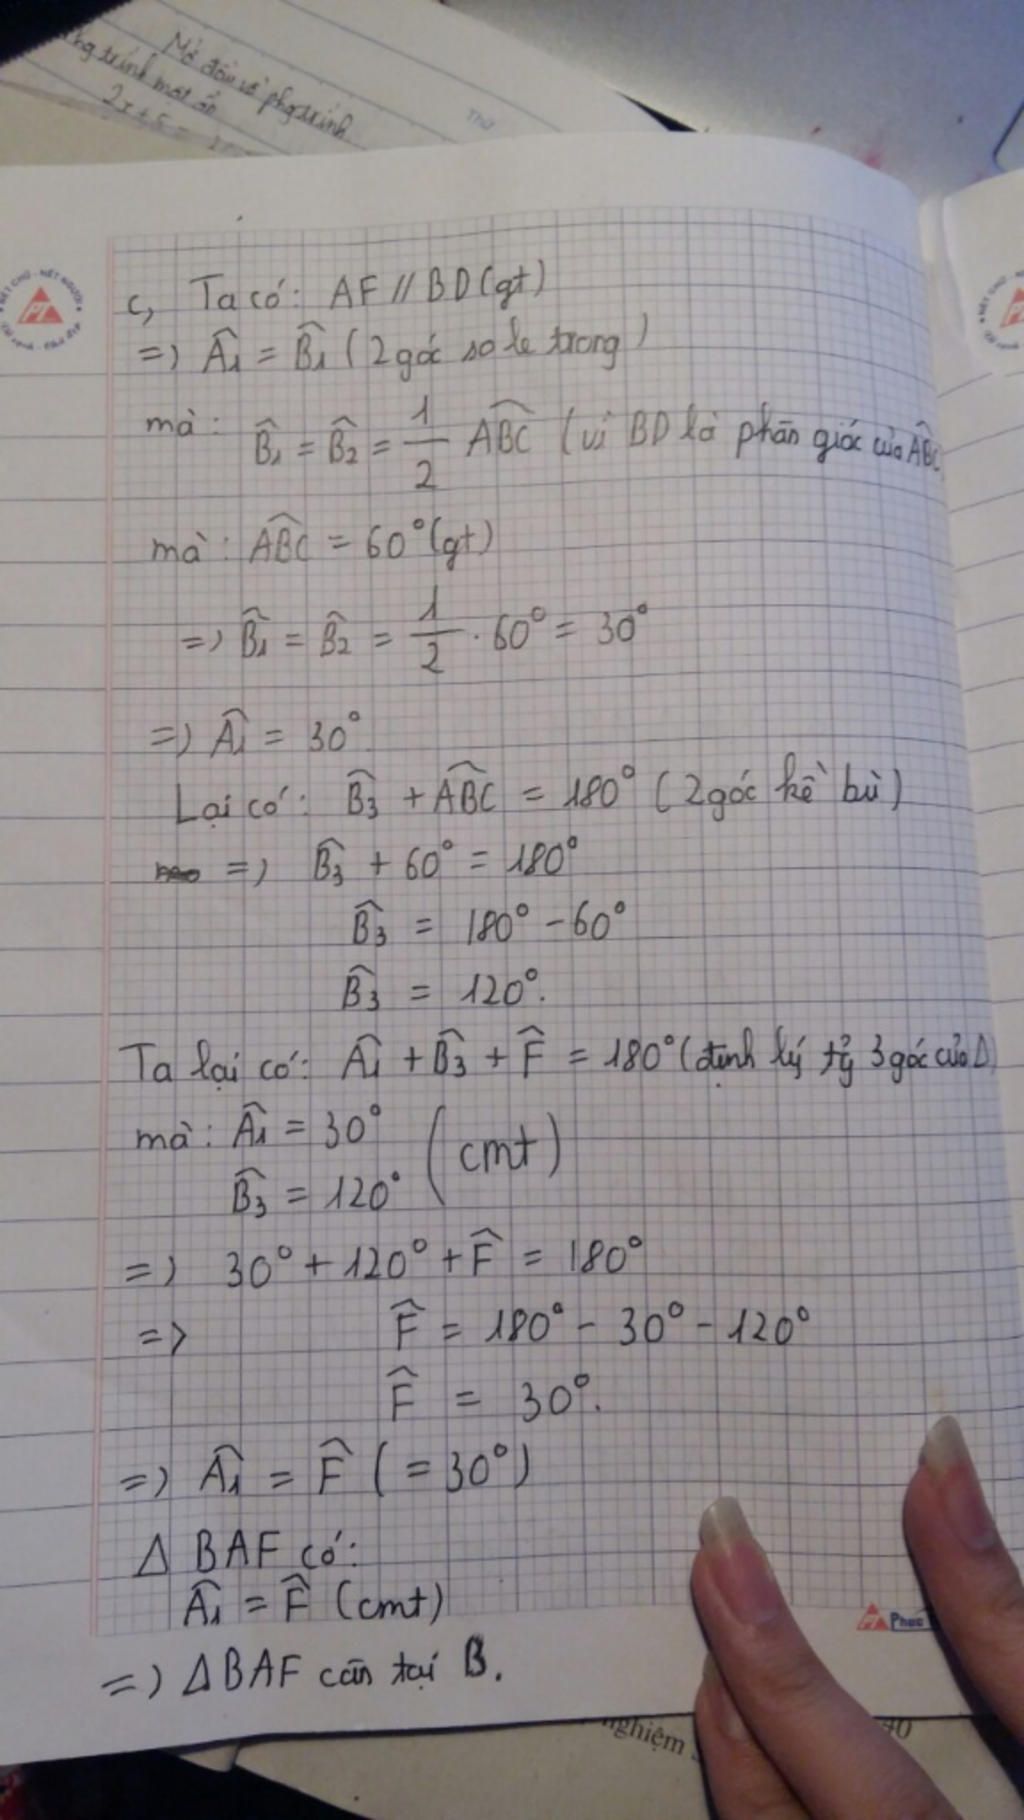 Mở đầu về phương trình
2x + 5 =
Thứ
NÉT CHỮ - NẾT NGƯỜI
PT
c, Ta có: AF // BD (gt)
=) Â₁ = B̂₁ (2 góc so le trong)
mà: B̂₁ = B̂₂ = 1/2 ABC̑ (vì BD là phân giác của ABC̑
mà: ABC̑ = 60° (gt)
=) B̂₁ = B̂₂ = 1/2 . 60° = 30°
=) Â₁ = 30°
Lại có: B̂₃ + ABC̑ = 180° (2 góc kề bù)
=) B̂₃ + 60° = 180°
B̂₃ = 180° - 60°
B̂₃ = 120°.
Ta lại có: Â₁ + B̂₃ + F̂ = 180° (định lý tg 3 góc của Δ)
mà: Â₁ = 30°
B̂₃ = 120° (cmt)
=) 30° + 120° + F̂ = 180°
=> F̂ = 180° - 30° - 120°
F̂ = 30°.
=) Â₁ = F̂ (= 30°)
Δ BAF có:
Â₁ = F̂ (cmt)
=) Δ BAF cân tại B.
PT Phuc
nghiệm
40